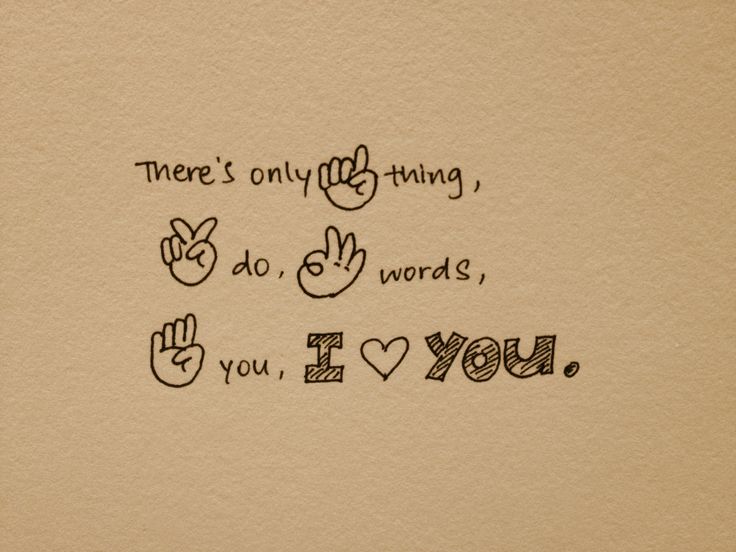 There's only ☝ thing,
✌ do, 👌 words,
🖐 you, I ♡ YOU.